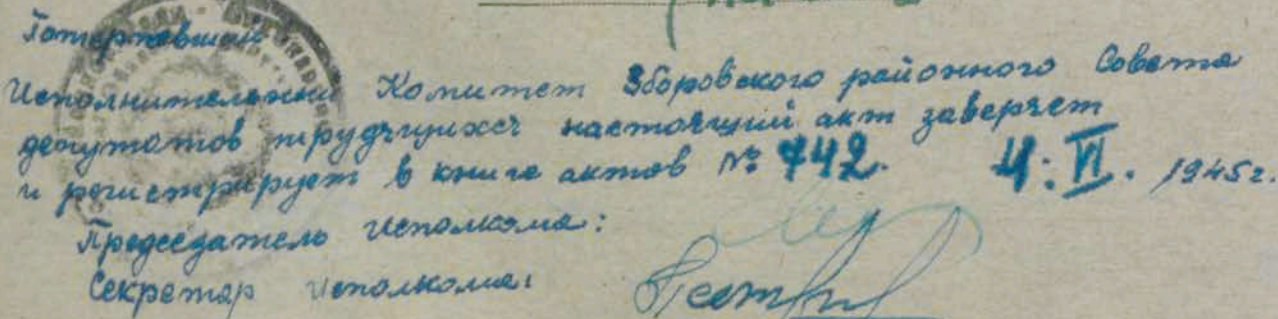 Потерпевший
Исполнительный Комитет Зборовского районного Совета
депутатов трудящихся настоящий акт заверяет
и регистрирует в книге актов № 742. 4. VI. 1945г.
Председатель исполкома:
Секретар исполкома: